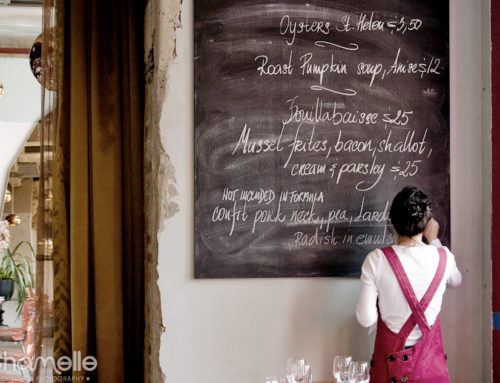 Oysters St. Helen $5,50
Roast Pumpkin soup, Anise $12
Bouillabaisse $25
Mussel frites, bacon, shallot,
cream & parsley $25
NOT INCLUDED IN FORMULA
confit pork neck, pea, lard
Radish in emul
chamelle
PHOTOGRAPHY